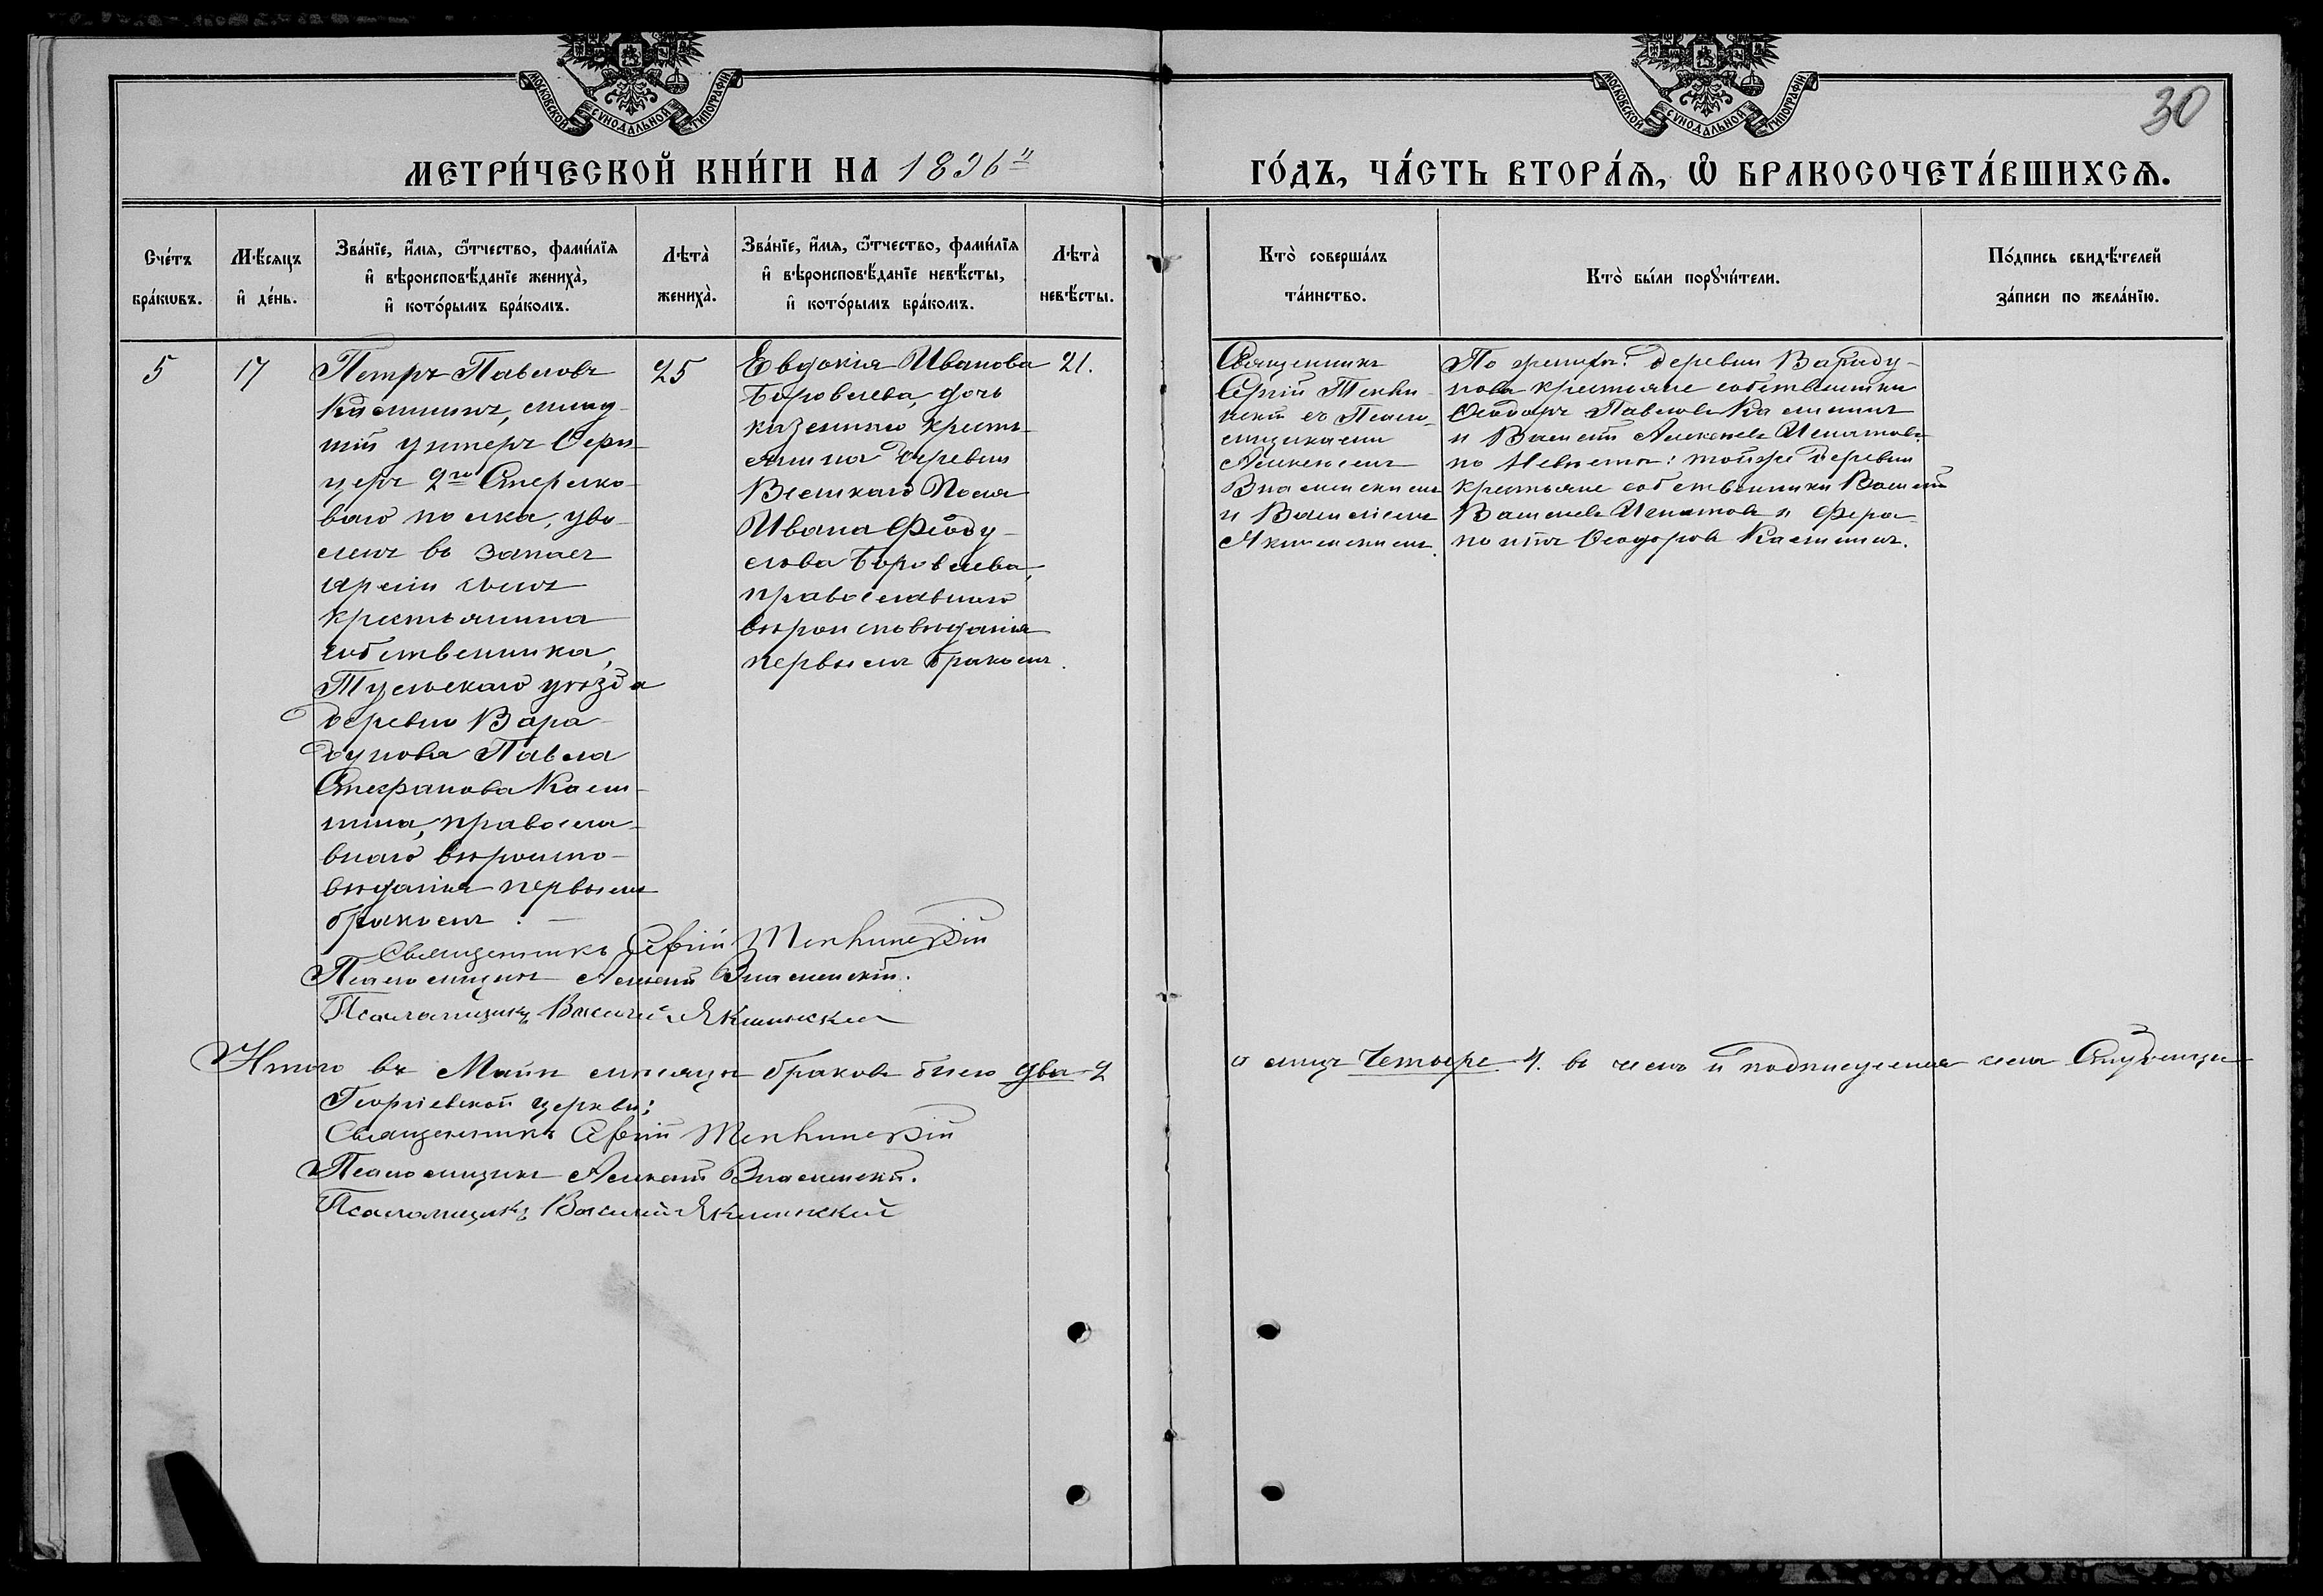 МОСКОВСКОЙ СУНОДАЛЬНОЙ ТИПОГРАФІИ
МОСКОВСКОЙ СУНОДАЛЬНОЙ ТИПОГРАФІИ
30
МЕТРИ́ЧЕСКОЙ КНИ́ГИ НА 1896й
ГО́ДЪ, ЧА́СТЬ ВТОРА́Ѧ, Ѡ҆ БРАКОСОЧЕТА́ВШИХСѦ.
Сче́тъ
бра́кѡвъ.
Мѣ́сяцъ
и҆ де́нь.
Зва́нїе, и҆́мѧ, ѻ҆́тчество, фами́лїѧ
и҆ вѣроисповѣ́данїе жениха̀,
и҆ кото́рымъ бра́комъ.
Лѣта̀
жениха̀.
Зва́нїе, и҆́мѧ, ѻ҆́тчество, фами́лїѧ
и҆ вѣроисповѣ́данїе невѣ́сты,
и҆ кото́рымъ бра́комъ.
Лѣта̀
невѣ́сты.
Кто̀ соверша́лъ
та́инство.
Кто̀ бы́ли порꙋчи́тели.
По́дпись свидѣ́телей
за́писи по жела́нїю.
5
17
Петръ Павловъ
Касиминъ, млад-
шій унтеръ Офи-
церъ 2го Стрелко-
ваго полка, уво-
ленъ въ запасъ
арміи сынъ
крестьянина
собственника,
Тульскаго уѣзда
деревни Вара-
дунова Павла
Стефанова Касим-
ина, правосла-
внаго вѣроиспо-
вѣданія первымъ
бракомъ. —
25
Евдокія Иванова
Боровлева, дочь
казеннаго кресть-
янина деревни
Великаго Поля
Ивана Феоду-
лова Боровлева,
православнаго
вѣроисповѣданія
первымъ бракомъ.
21.
Священникъ
Сергій
съ Псало-
мщиками
Алексѣемъ
Знаменскимъ
и Василіемъ
По женихѣ: деревни Вараду-
нова крестьяне собственники
Ѳеодоръ Павловъ Касиминъ
и Василій Алексѣевъ Игнатовъ
по Невѣстѣ: тойже деревни
крестьяне собственники Василій
Васильевъ Игнатовъ и Фера-
понтъ Ѳеодоровъ Касиминъ.
Священникъ Сергій
Псаломщикъ Алексѣй Знаменскій.
Псаломщикъ Василій
Итого въ Маѣ мѣсяцѣ браковъ было два 2
а лицъ Четыре 4. въ чемъ и подписуемся села
Георгіевской церкви:
Священникъ Сергій
Псаломщикъ Алексѣй Знаменскій.
Псаломщикъ Василій